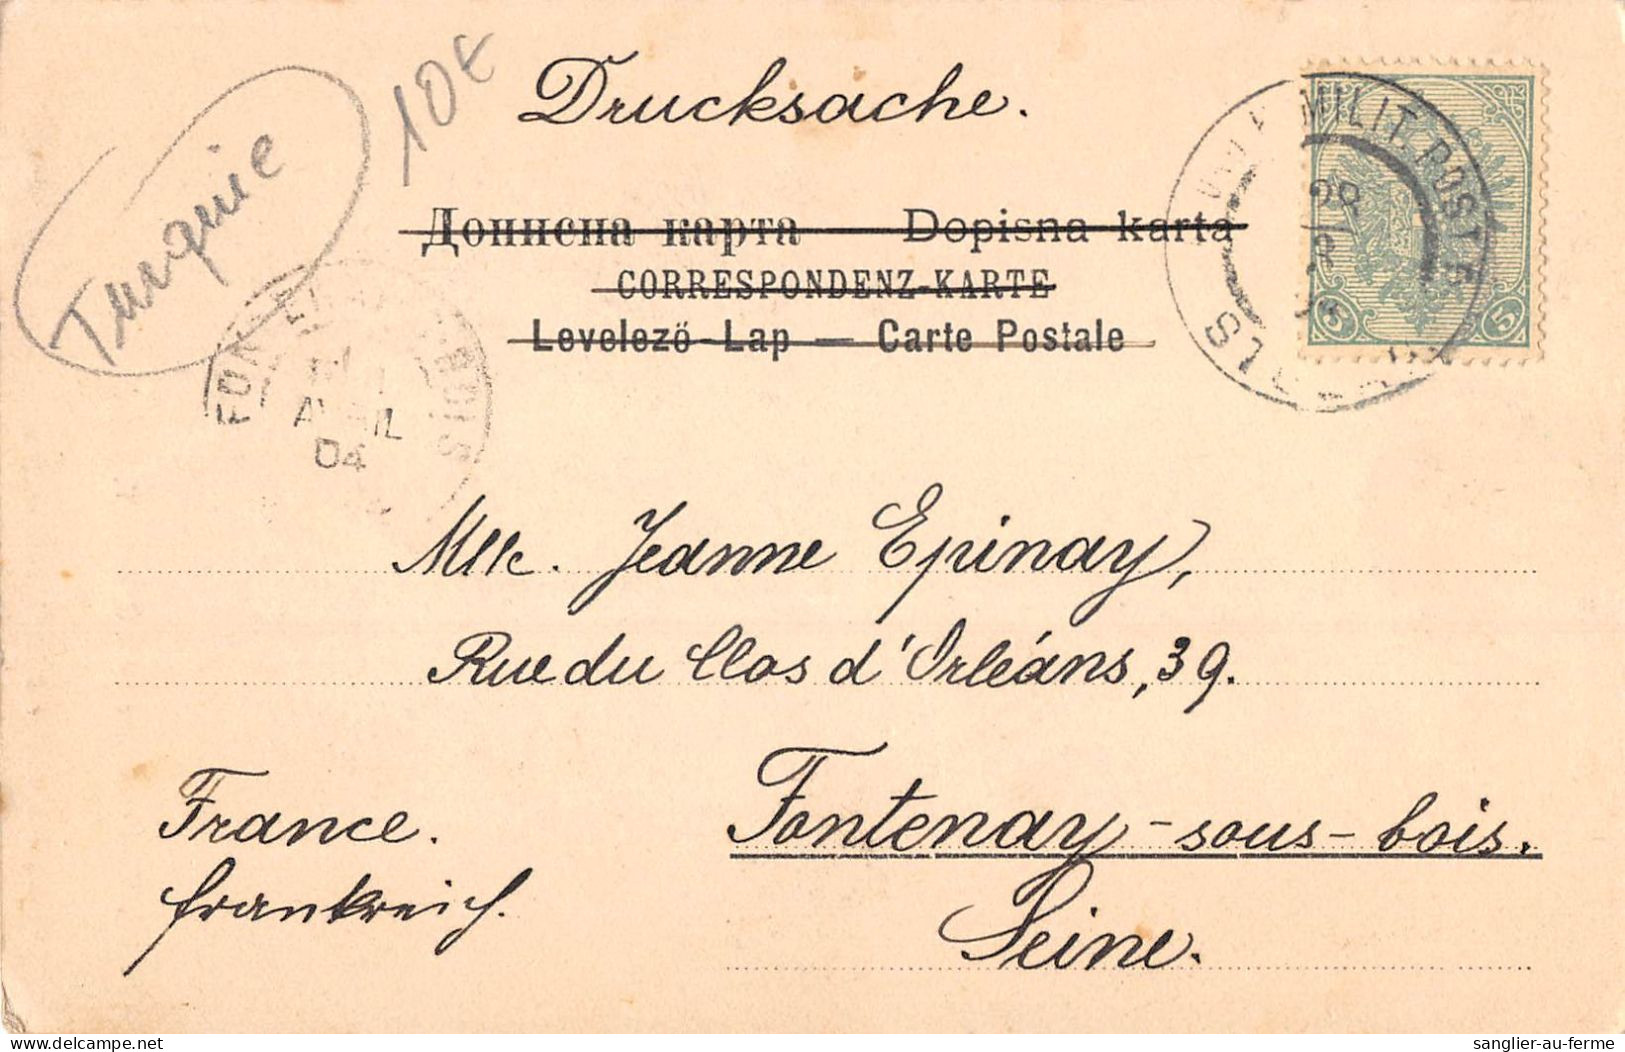 Drucksache.
10€
Turquie
Дописна карта Dopisna karta
CORRESPONDENZ-KARTE
Levelező-Lap — Carte Postale
MILIT. POST
5 5
AVRIL
04
Mlle. Jeanne Epinay,
Rue du Clos d'Orléans, 39.
Fontenay-sous-bois.
Seine.
France.
Frankreich.
sanglier-au-ferme
delcampe.net